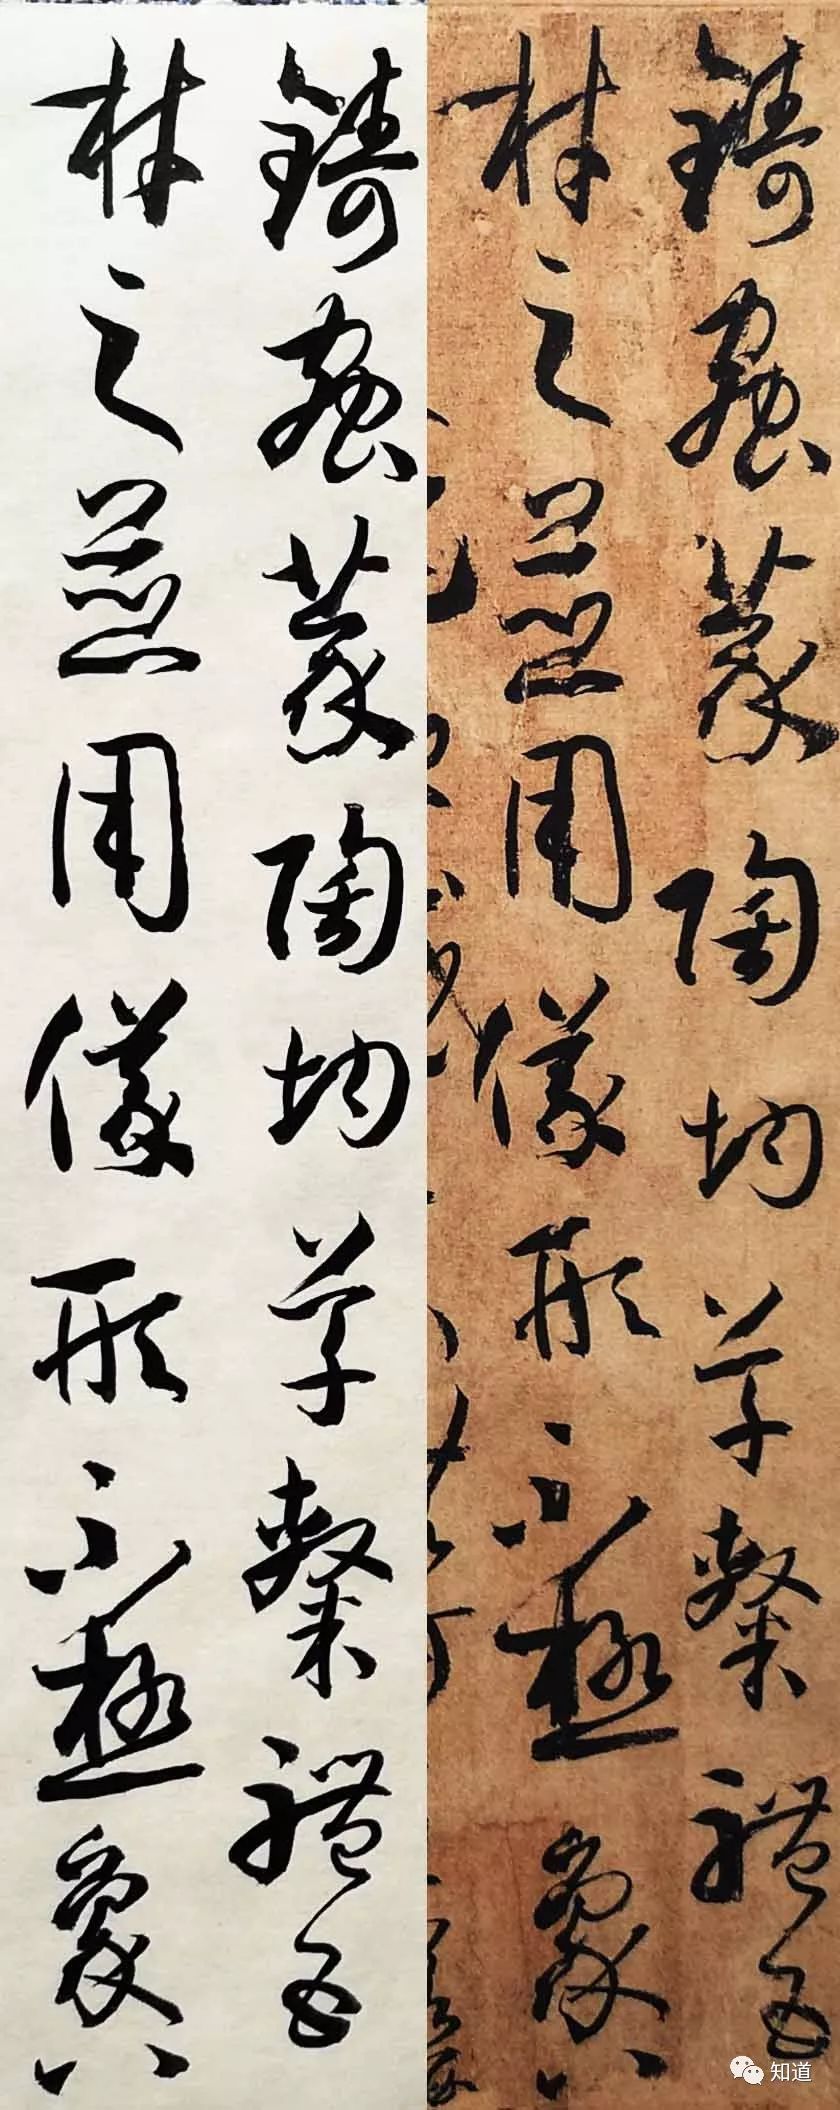 鑄蟲篆陶均草隸體五
材之並用儀形不極象八
鑄蟲篆陶均草隸體五
材之並用儀形不極象八
知道